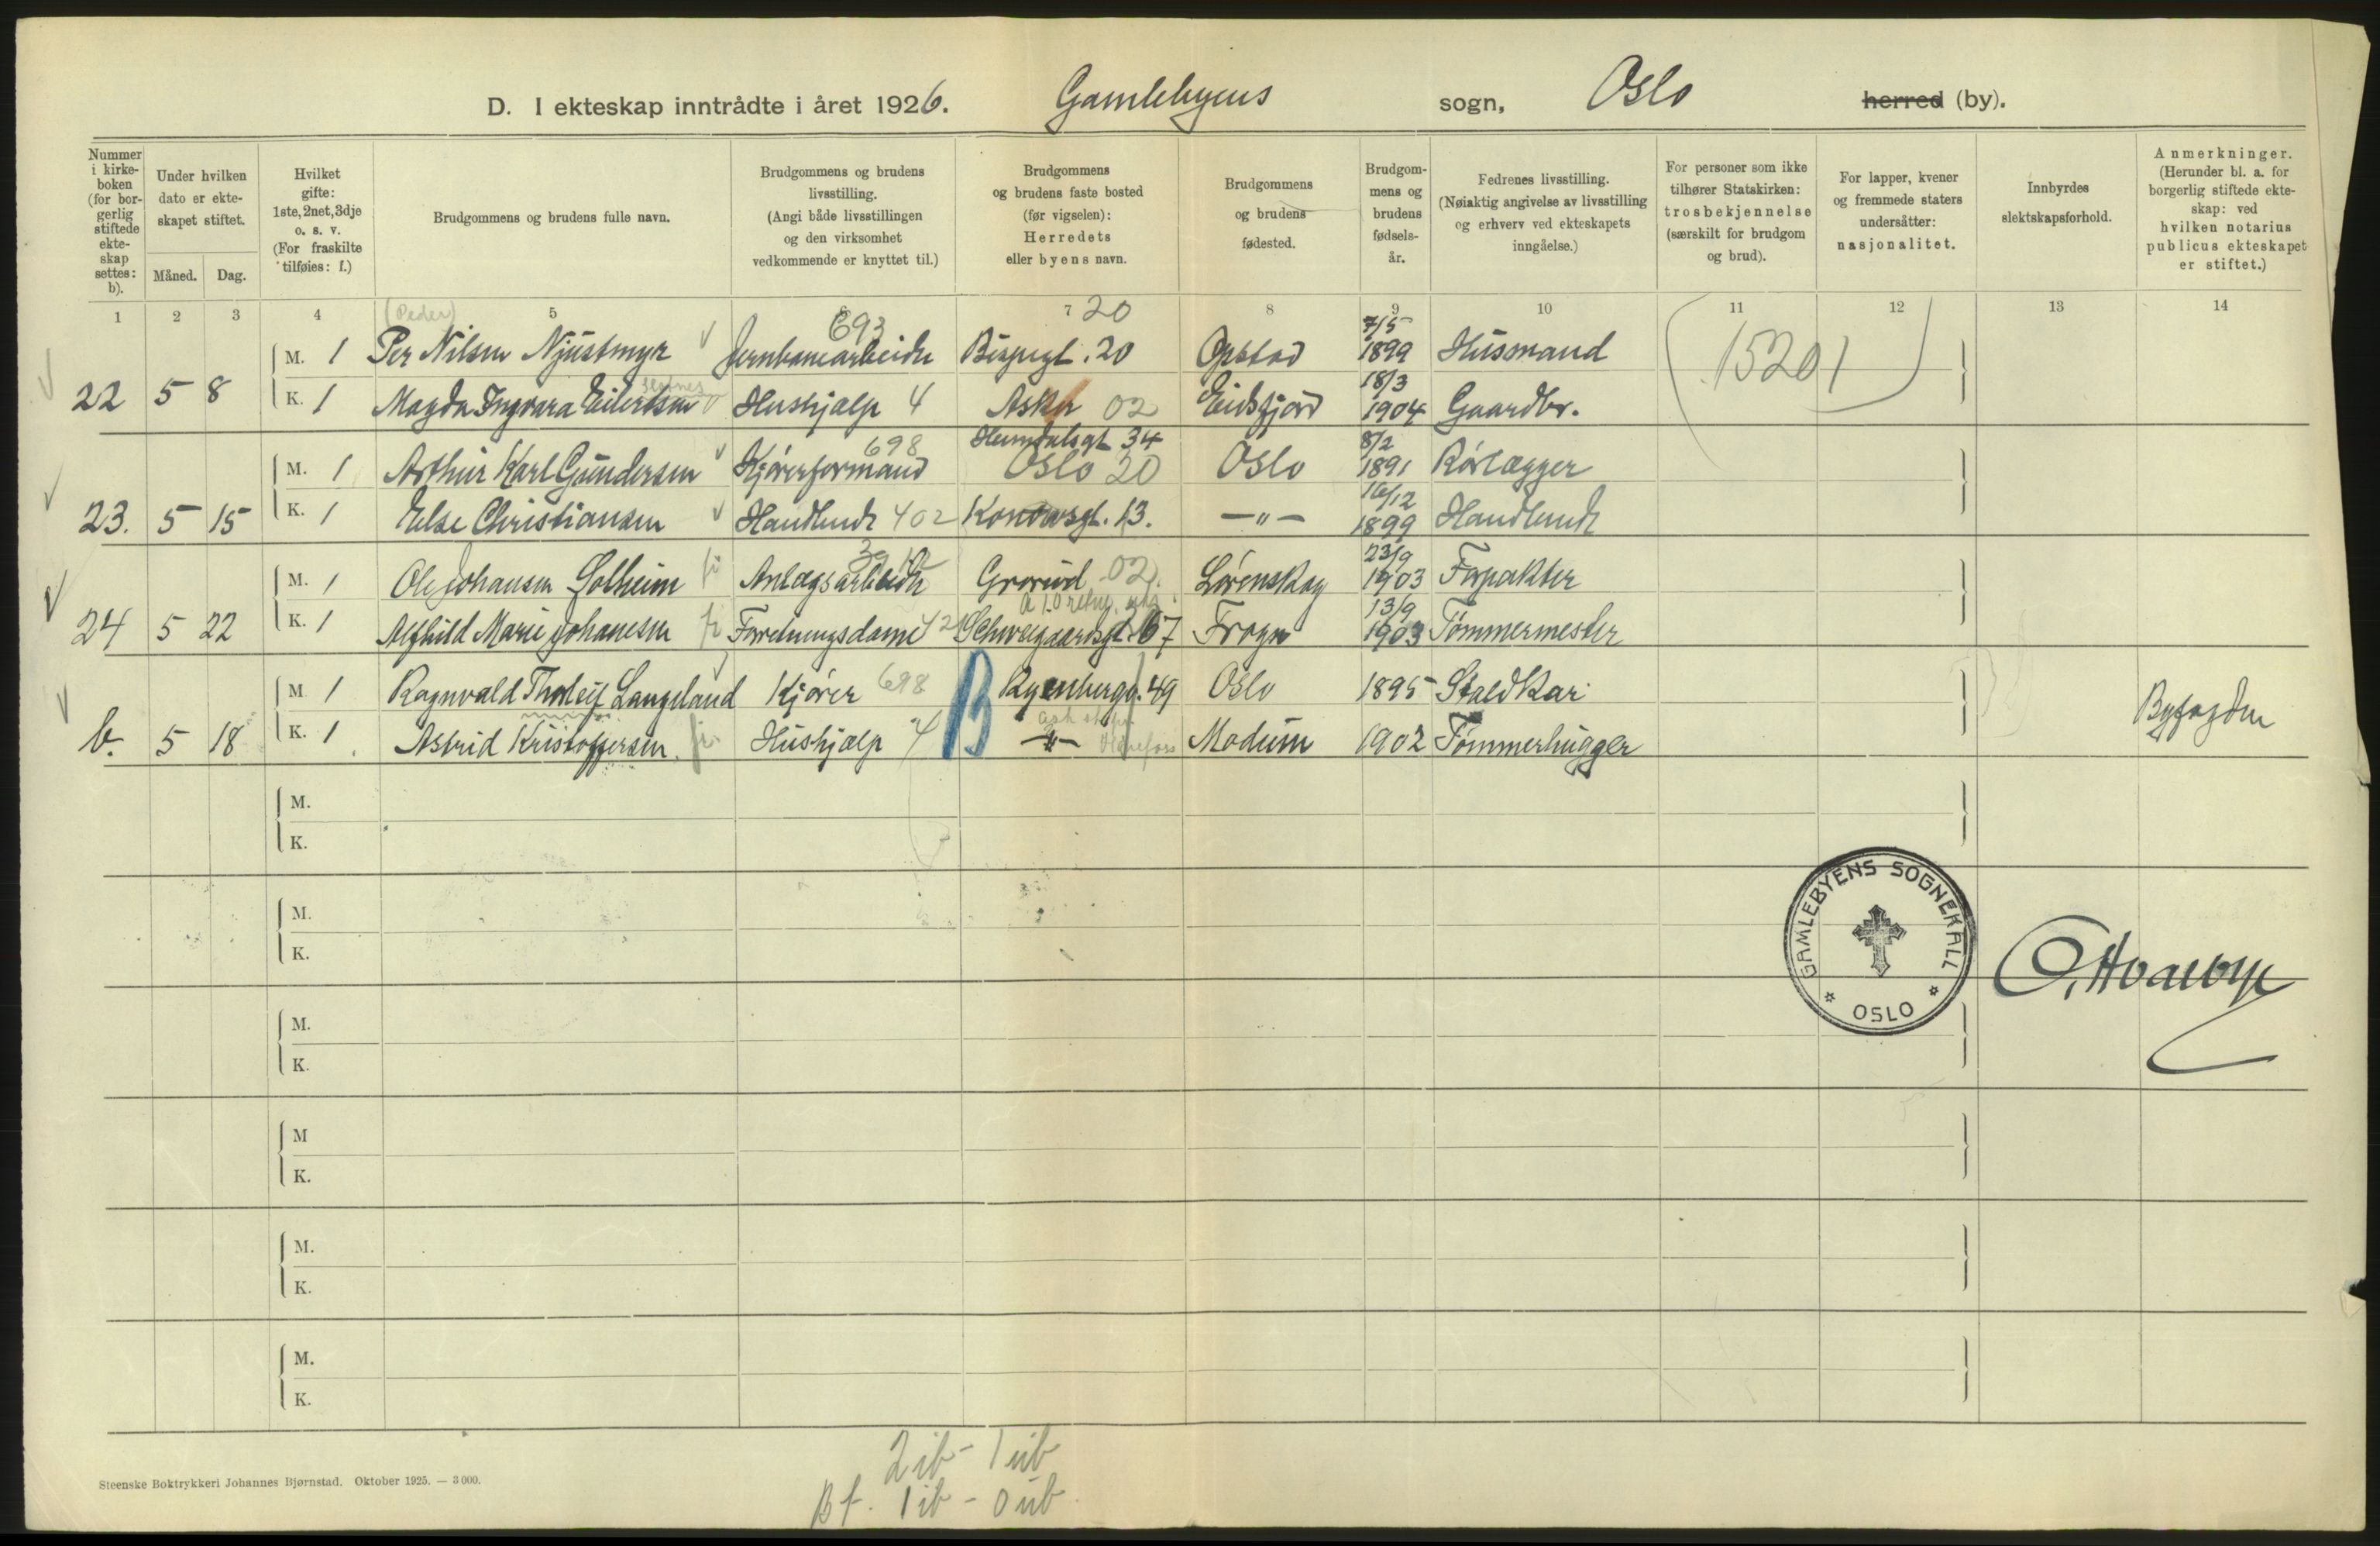 D. I ekteskap inntrådte i året 1926. Gamlebyens sogn, Oslo herred (by).
Nummer i kirke-boken (for bor-gerlig stiftede ekte-skap settes: b).
Under hvilken dato er ekte-skapet stiftet.
Måned. Dag.
Hvilket gifte: 1ste, 2net, 3dje o. s. v. (For fraskilte tilføies: f.)
Brudgommens og brudens fulle navn.
Brudgommens og brudens livsstilling. (Angi både livsstillingen og den virksomhet vedkommende er knyttet til.)
Brudgommens og brudens faste bosted (før vigselen): Herredets eller byens navn.
Brudgommens og brudens fødested.
Brudgom-mens og brudens fødsels-år.
Fedrenes livsstilling. (Nøiaktig angivelse av livsstilling og erhverv ved ekteskapets inngåelse.)
For personer som ikke tilhører Statskirken: trosbekjennelse (særskilt for brudgom og brud).
For lapper, kvener og fremmede staters undersåtter: nasjonalitet.
Innbyrdes slektskapsforhold.
Anmerkninger. (Herunder bl. a. for borgerlig stiftede ekte-skap: ved hvilken notarius publicus ekteskapet er stiftet.)
1 2 3 4 5 6 7 8 9 10 11 12 13 14
(Peder) 693 20 7/5
M. 1 Per Nilsen Njustmyr Jernbanearbeider Bispegt. 20 Opstad 1899 Husmand 15201
22 5 8 K. 1 Magda Ingvara Eilertsen Hushjælp 4 Asker 02 Eidsfjord 18/3 1904 Gaardbr.
698 Hemdalsgt 34 8/2
M. 1 Arthur Karl Gundersen Kjørerformand Oslo 20 Oslo 1891 Rørlægger
23. 5 15 K. 1 Else Christiansen Handlende 402 Konowsgt. 13. —"— 16/12 1899 Handlende
23/9
M. 1 Ole Johansen Solheim fi Anlægsarbeider Grorud 02. Lørenskog 1903 Forpakter
24 5 22 K. 1 Alfhild Marie Johanesen fi Forretningsdame 42 Schweigaardsgt. 67 Frogn 13/9 1903 Tømmermester
M 1 Ragnvald Thorleif Langeland Kjører 698 B Ryenbergv. 49 Oslo 1895 Staldkar
b. 5 18 K. 1 Astrid Kristoffersen fi Hushjælp 4 —"— Modum 1902 Tømmerhugger Byfogden
M.
K.
M.
K.
M.
K.
M
K.
M.
K.
M.
K.
GAMLEBYENS SOGNEKALL
OSLO
2 ib - 1 ub
Bf. 1 ib - 0 ub
Steenske Boktrykkeri Johannes Bjørnstad. Oktober 1925. — 3 000.